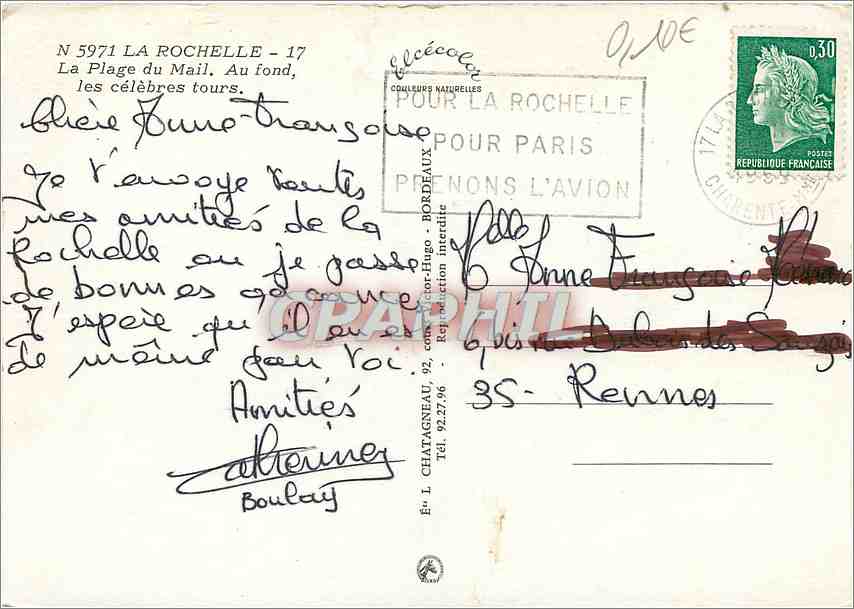 N 5971 LA ROCHELLE - 17
La Plage du Mail. Au fond,
les célèbres tours.
elcécolor
COULEURS NATURELLES
0,10€
POUR LA ROCHELLE
POUR PARIS
PRENONS L'AVION
17 LA
CHARENTE-MME
0,30
POSTES
REPUBLIQUE FRANÇAISE
Chère Anne-Françoise
Je t'envoye toutes
mes amitiés de la
Rochelle ou je passe
de bonnes vacances
J'espère qu'il en est
de même pour toi.
Amitiés
Catherine
Boulay
Éts L CHATAGNEAU, 92, cours Victor-Hugo - BORDEAUX
Tél. 92.27.96 - Reproduction interdite
CPAPHIL
Melle Anne Françoise
6, bis
35 - Rennes